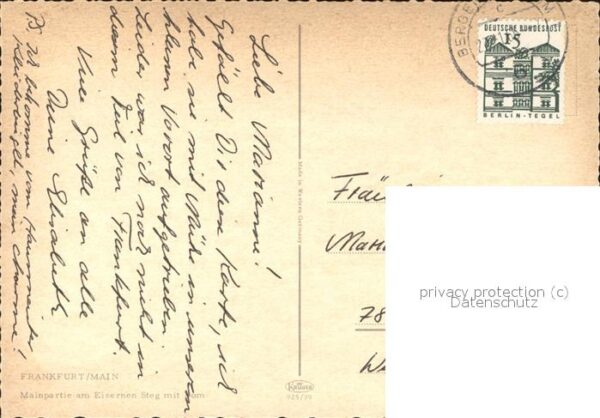 Liebe Marianne!
Gefällt Dir diese Karte, ich
habe sie mit Mühe in unserem
kleinen Vorort aufgetrieben.
Leider war ich noch nicht in
diesem Teil von Frankfurt.
Viele Grüße an alle
Deine Elisabeth
Ich bekomme von Hausmeister
Kleidchengeld, mein
FRANKFURT/MAIN
Mainpartie am Eisernen Steg mit Dom
Made in Western Germany
Krüger
925/39
BERGEN
DEUTSCHE BUNDESPOST
15
BERLIN-TEGEL
Fräulein
Mari
78
privacy protection (c)
Datenschutz